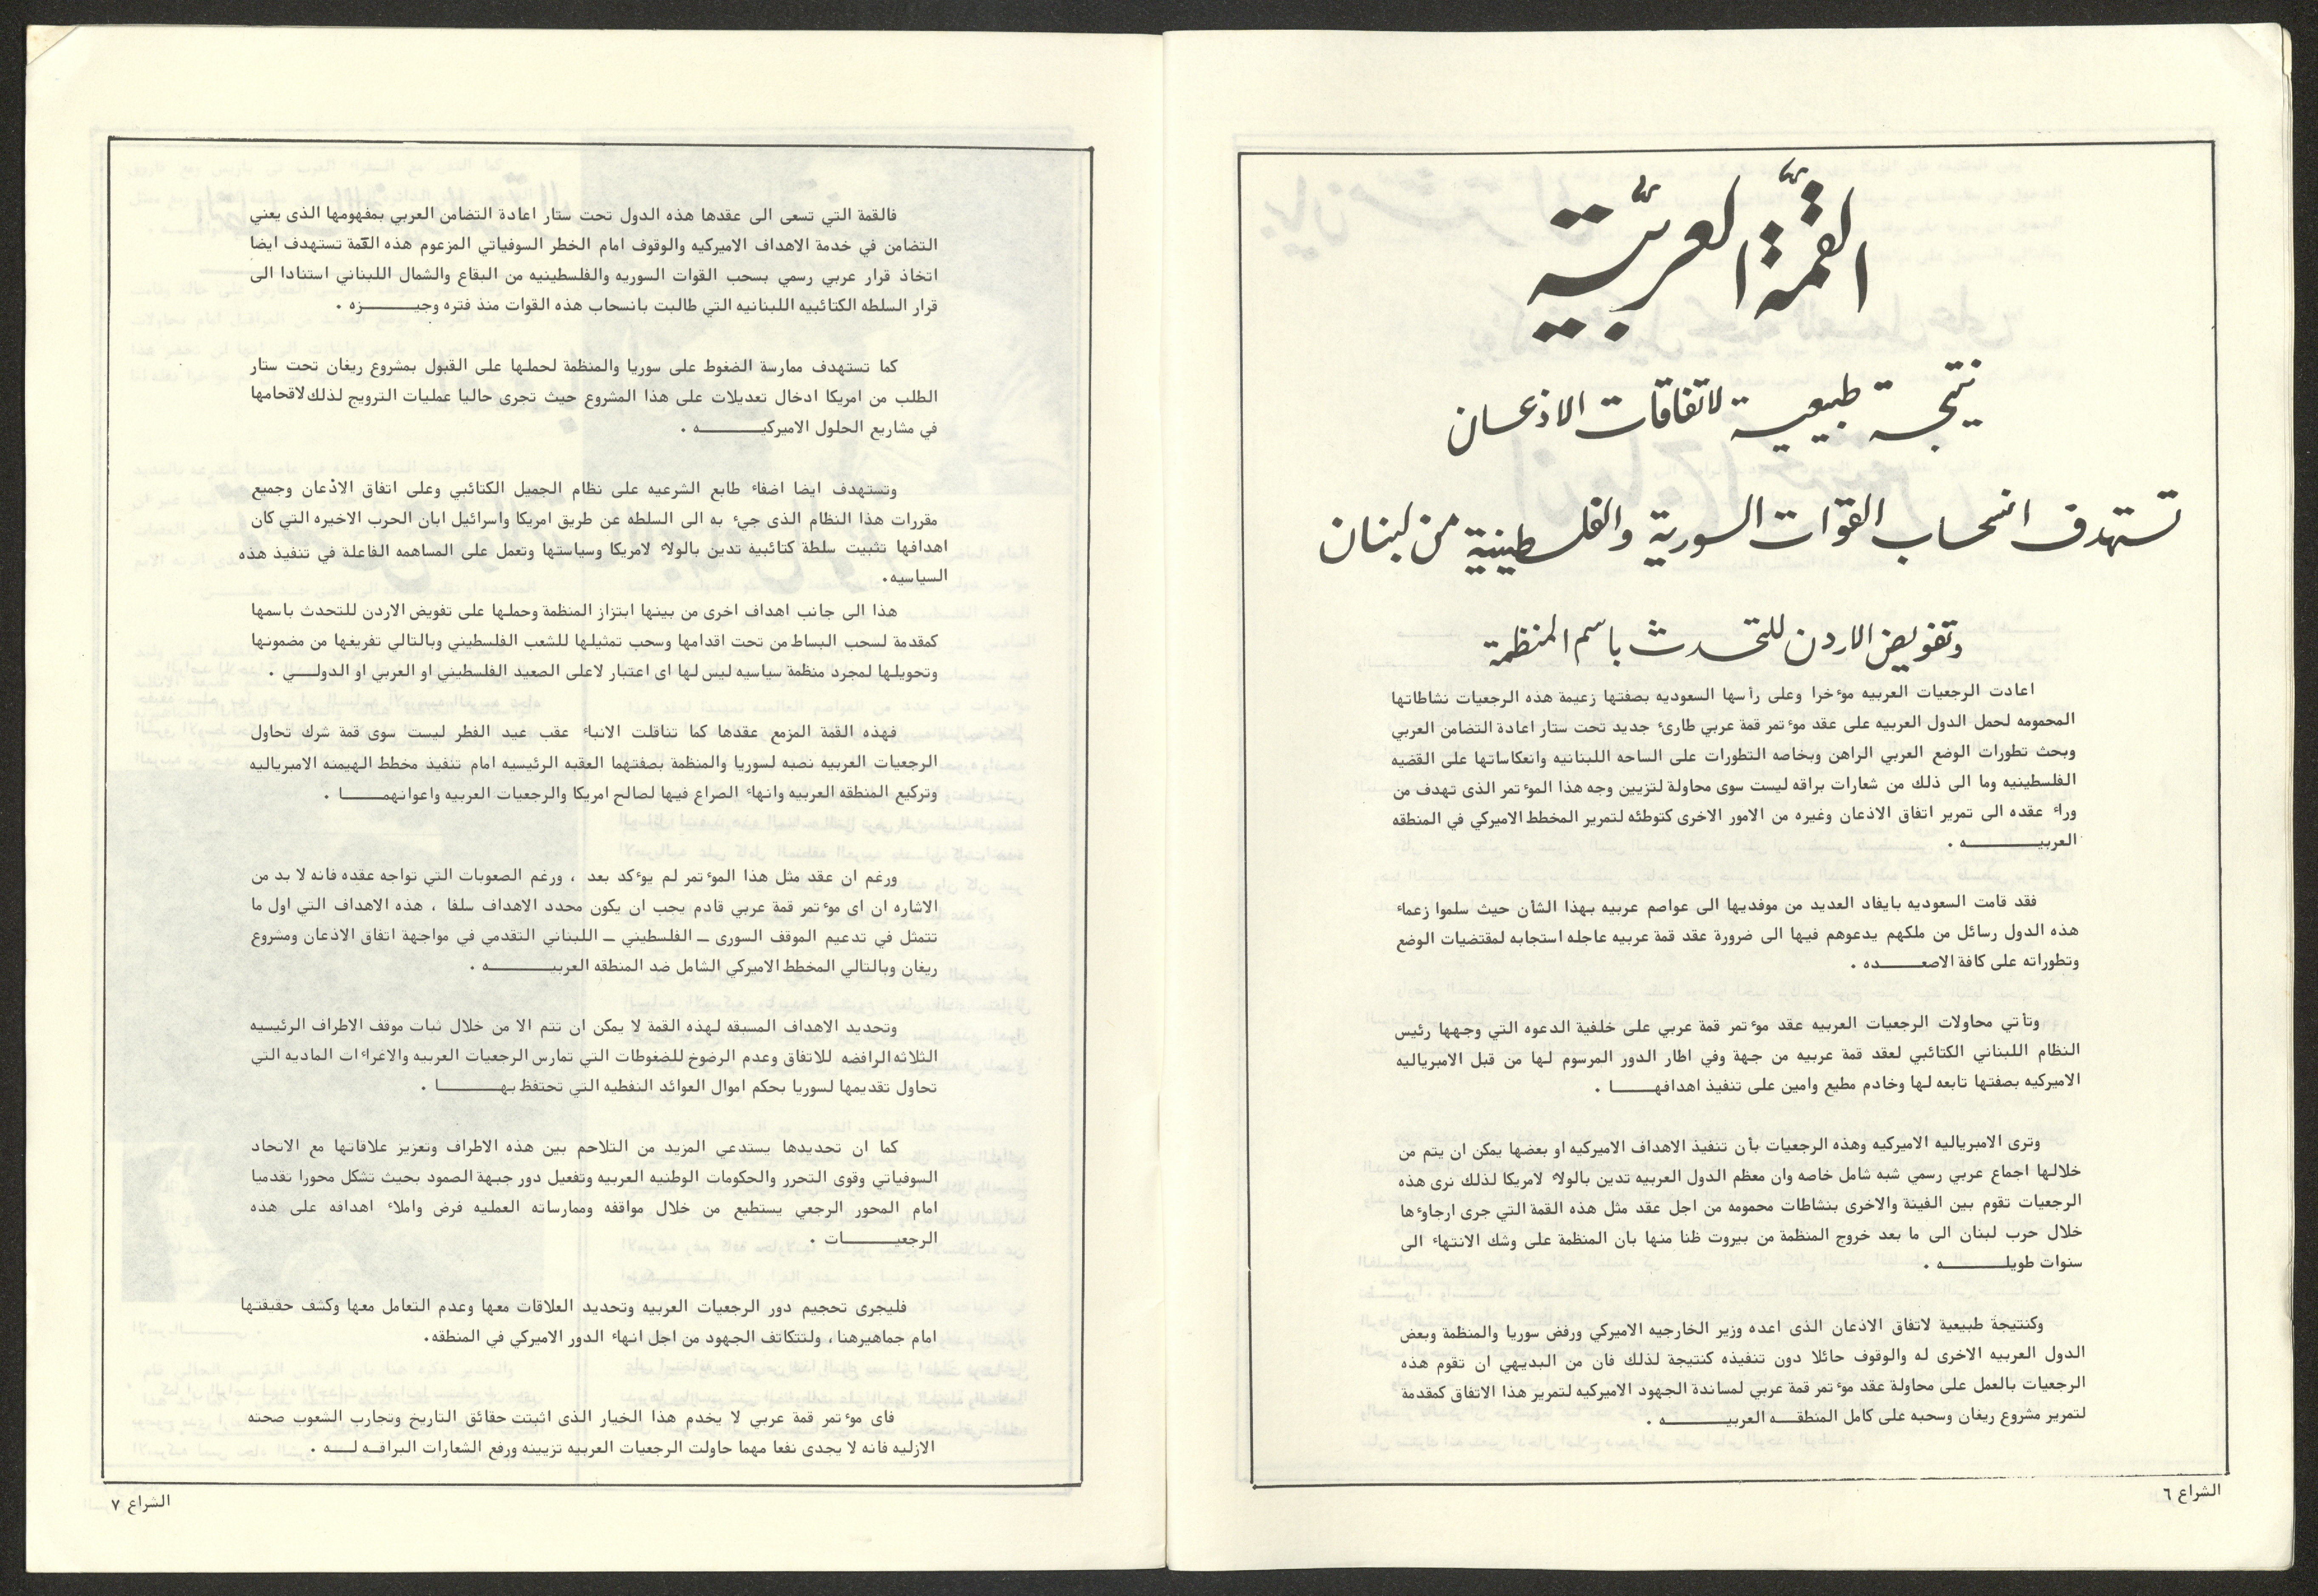 القمّة العربيّة
نتيجـة طبيعيـة لاتفاقات الاذعـان
تستهدف انسحاب القوات السورية والفلسطينية من لبنان
وتفويض الاردن للتحدث باسم المنظمة
اعادت الرجعيات العربيه موٴخرا وعلى رأسها السعوديه بصفتها زعيمة هذه الرجعيات نشاطاتها
المحمومه لحمل الدول العربيه على عقد موٴتمر قمة عربي طارىٴ جديد تحت ستار اعادة التضامن العربي
وبحث تطورات الوضع العربي الراهن وبخاصه التطورات على الساحه اللبنانيه وانعكاساتها على القضيه
الفلسطينيه وما الى ذلك من شعارات براقه ليست سوى محاولة لتزيين وجه هذا الموٴتمر الذى تهدف من
وراء عقده الى تمرير اتفاق الاذعان وغيره من الامور الاخرى كتوطئه لتمرير المخطط الاميركي في المنطقه
العربيــــــــه .
فقد قامت السعوديه بايفاد العديد من موفديها الى عواصم عربيه بهذا الشأن حيث سلموا زعماء
هذه الدول رسائل من ملكهم يدعوهم فيها الى ضرورة عقد قمة عربيه عاجله استجابه لمقتضيات الوضع
وتطوراته على كافة الاصعـــــده .
وتأتي محاولات الرجعيات العربيه عقد موٴتمر قمة عربي على خلفية الدعوه التي وجهها رئيس
النظام اللبناني الكتائبي لعقد قمة عربيه من جهة وفي اطار الدور المرسوم لها من قبل الامبرياليه
الاميركيه بصفتها تابعه لها وخادم مطيع وامين على تنفيذ اهدافهـــــا .
وترى الامبرياليه الاميركيه وهذه الرجعيات بأن تنفيذ الاهداف الاميركيه او بعضها يمكن ان يتم من
خلالها اجماع عربي رسمي شبه شامل خاصه وان معظم الدول العربيه تدين بالولاء لامريكا لذلك نرى هذه
الرجعيات تقوم بين الفينة والاخرى بنشاطات محمومه من اجل عقد مثل هذه القمة التي جرى ارجاوٴها
خلال حرب لبنان الى ما بعد خروج المنظمة من بيروت ظنا منها بان المنظمة على وشك الانتهاء الى
سنوات طويلــــــــه .
وكنتيجة طبيعية لاتفاق الاذعان الذى اعده وزير الخارجيه الاميركي ورفض سوريا والمنظمة وبعض
الدول العربيه الاخرى له والوقوف حائلا دون تنفيذه كنتيجة لذلك فان من البديهي ان تقوم هذه
الرجعيات بالعمل على محاولة عقد موٴتمر قمة عربي لمساندة الجهود الاميركيه لتمرير هذا الاتفاق كمقدمة
لتمرير مشروع ريغان وسحبه على كامل المنطقـــه العربيــــــــه .
الشراع ٦
فالقمة التي تسعى الى عقدها هذه الدول تحت ستار اعادة التضامن العربي بمفهومها الذى يعني
التضامن في خدمة الاهداف الاميركيه والوقوف امام الخطر السوفياتي المزعوم هذه القمة تستهدف ايضا
اتخاذ قرار عربي رسمي بسحب القوات السوريه والفلسطينيه من البقاع والشمال اللبناني استنادا الى
قرار السلطه الكتائبيه اللبنانيه التي طالبت بانسحاب هذه القوات منذ فتره وجيــــــزه .
كما تستهدف ممارسة الضغوط على سوريا والمنظمة لحملها على القبول بمشروع ريغان تحت ستار
الطلب من امريكا ادخال تعديلات على هذا المشروع حيث تجرى حاليا عمليات الترويج لذلك لاقحامها
في مشاريع الحلول الاميركيــــــه .
وتستهدف ايضا اضفاء طابع الشرعيه على نظام الجميل الكتائبي وعلى اتفاق الاذعان وجميع
مقررات هذا النظام الذى جيء به الى السلطه عن طريق امريكا واسرائيل ابان الحرب الاخيره التي كان
اهدافها تثبيت سلطة كتائبية تدين بالولاء لامريكا وسياستها وتعمل على المساهمه الفاعلة في تنفيذ هذه
السياسيه.
هذا الى جانب اهداف اخرى من بينها ابتزاز المنظمة وحملها على تفويض الاردن للتحدث باسمها
كمقدمة لسحب البساط من تحت اقدامها وسحب تمثيلها للشعب الفلسطيني وبالتالي تفريغها من مضمونها
وتحويلها لمجرد منظمة سياسيه ليس لها اى اعتبار لاعلى الصعيد الفلسطيني او العربي او الدولـــي .
فهذه القمة المزمع عقدها كما تناقلت الانباء عقب عيد الفطر ليست سوى قمة شرك تحاول
الرجعيات العربيه نصبه لسوريا والمنظمة بصفتهما العقبه الرئيسيه امام تنفيذ مخطط الهيمنه الامبرياليه
وتركيع المنطقه العربيه وانهاء الصراع فيها لصالح امريكا والرجعيات العربيه واعوانهمـــــا .
ورغم ان عقد مثل هذا الموٴتمر لم يوٴكد بعد ، ورغم الصعوبات التي تواجه عقده فانه لا بد من
الاشاره ان اى موٴتمر قمة عربي قادم يجب ان يكون محدد الاهداف سلفا ، هذه الاهداف التي اول ما
تتمثل في تدعيم الموقف السورى ــ الفلسطيني ــ اللبناني التقدمي في مواجهة اتفاق الاذعان ومشروع
ريغان وبالتالي المخطط الاميركي الشامل ضد المنطقه العربيــــــــه .
وتحديد الاهداف المسبقه لهذه القمة لا يمكن ان تتم الا من خلال ثبات موقف الاطراف الرئيسيه
الثلاثه الرافضه للاتفاق وعدم الرضوخ للضغوطات التي تمارس الرجعيات العربيه والاغراءات الماديه التي
تحاول تقديمها لسوريا بحكم اموال العوائد النفطيه التي تحتفظ بهــــــــا .
كما ان تحديدها يستدعي المزيد من التلاحم بين هذه الاطراف وتعزيز علاقاتها مع الاتحاد
السوفياتي وقوى التحرر والحكومات الوطنيه العربيه وتفعيل دور جبهة الصمود بحيث تشكل محورا تقدميا
امام المحور الرجعي يستطيع من خلال مواقفه وممارساته العمليه فرض واملاء اهدافه على هذه
الرجعيــــــــات .
فليجرى تحجيم دور الرجعيات العربيه وتحديد العلاقات معها وعدم التعامل معها وكشف حقيقتها
امام جماهيرهنا ، ولتتكاتف الجهود من اجل انهاء الدور الاميركي في المنطقه.
فاى موٴتمر قمة عربي لا يخدم هذا الخيار الذى اثبتت حقائق التاريخ وتجارب الشعوب صحته
الازليه فانه لا يجدى نفعا مهما حاولت الرجعيات العربيه تزيينه ورفع الشعارات البراقـه لـــه .
الشراع ٧